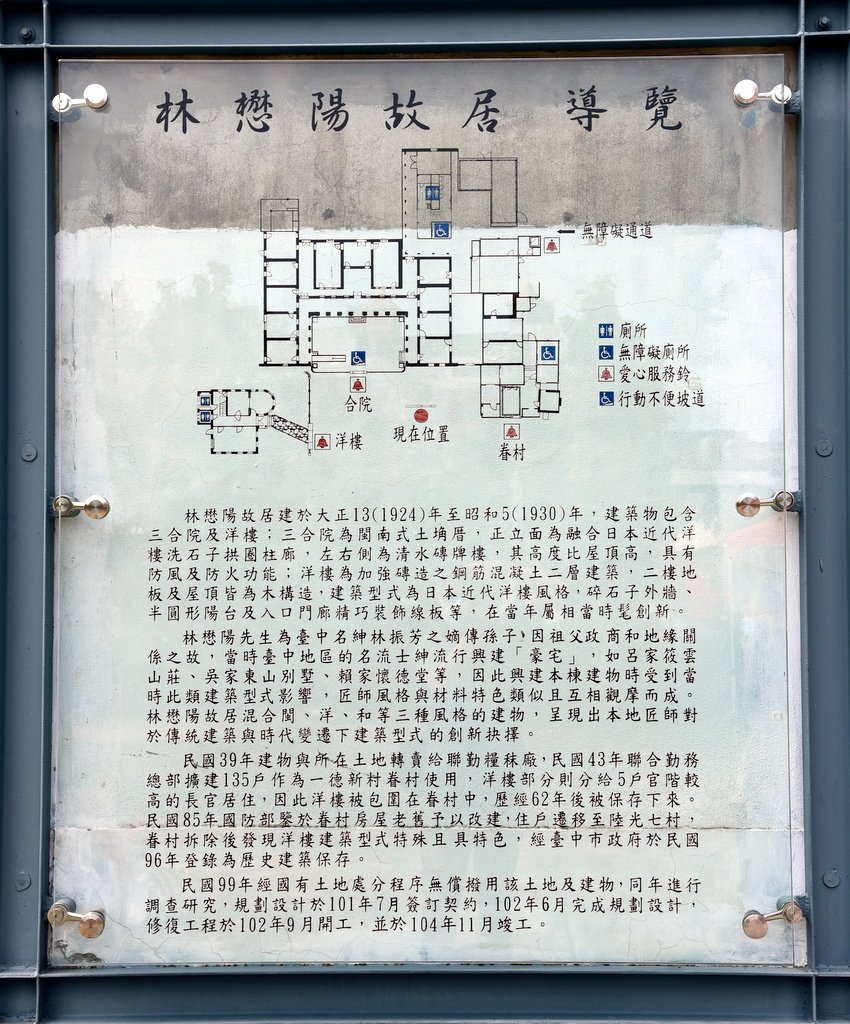 林懋陽故居 導覽
無障礙通道
廁所
無障礙廁所
愛心服務鈴
行動不便坡道
合院
現在位置
洋樓
眷村
林懋陽故居建於大正13(1924)年至昭和5(1930)年，建築物包含
三合院及洋樓；三合院為閩南式土埆厝，正立面為融合日本近代洋
樓洗石子拱圈柱廊，左右側為清水磚牌樓，其高度比屋頂高，具有
防風及防火功能；洋樓為加強磚造之鋼筋混凝土二層建築，二樓地
板及屋頂皆為木構造，建築型式為日本近代洋樓風格，碎石子外牆、
半圓形陽台及入口門廊精巧裝飾線板等，在當年屬相當時髦創新。
林懋陽先生為臺中名紳林振芳之嫡傳孫子，因祖父政商和地緣關
係之故，當時臺中地區的名流士紳流行興建「豪宅」，如呂家筱雲
山莊、吳家東山別墅、賴家懷德堂等，因此興建本棟建物時受到當
時此類建築型式影響，匠師風格與材料特色類似且互相觀摩而成。
林懋陽故居混合閩、洋、和等三種風格的建物，呈現出本地匠師對
於傳統建築與時代變遷下建築型式的創新抉擇。
民國39年建物與所在土地轉賣給聯勤糧秣廠，民國43年聯合勤務
總部擴建135戶作為一德新村眷村使用，洋樓部分則分給5戶官階較
高的長官居住，因此洋樓被包圍在眷村中，歷經62年後被保存下來。
民國85年國防部鑒於眷村房屋老舊予以改建，住戶遷移至陸光七村，
眷村拆除後發現洋樓建築型式特殊且具特色，經臺中市政府於民國
96年登錄為歷史建築保存。
民國99年經國有土地處分程序無償撥用該土地及建物，同年進行
調查研究，規劃設計於101年7月簽訂契約，102年6月完成規劃設計，
修復工程於102年9月開工，並於104年11月竣工。